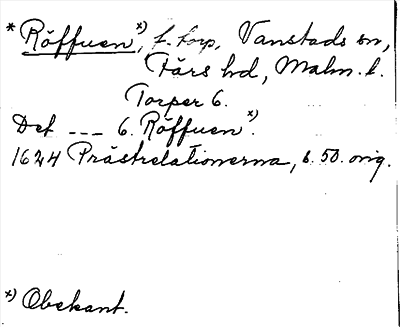 * Röffuen ˣ⁾, f. torp, Vanstads sn,
Färs hd, Malm. l.
Torper 6.
Det --- 6. Röffuen ˣ⁾.
1624 Prästrelationerna, s. 50. orig.
ˣ⁾ Obekant.